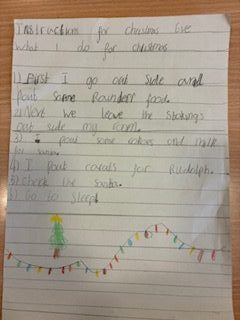 Instructions for christmas Eve
what I do for christmas
1) First I go out side and
pout some Raindeer food.
2) Next we leave the stokings
out side my room.
3) pout some cakies and milk
for santa.
4) I pout carats for Rudolph.
5) check the santa.
6) Go to sleep!